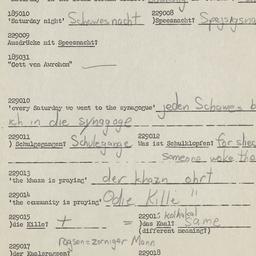 185010 229008
'Saturday night' Schawesnacht )Speesnacht?
229009
Ausdrücke mit Speesnacht?
185031
"Gott von Awrohom"
229010
'every Saturday we went to the synagogue' jeden Schawes b
ich in die synagoge
229011 Schulegange 229012
) Schulegangen? Was ist Schulklopfen? for
someone woke the
229013
'the khazn is praying' der khazn ohrt
229014
'the community is praying' Odie Kille "
229015 229016 kolhakol
)die Kille? + = )das Kaal? same
(different meaning?)
229017 rogsen=zorniger Mann
)der 229018